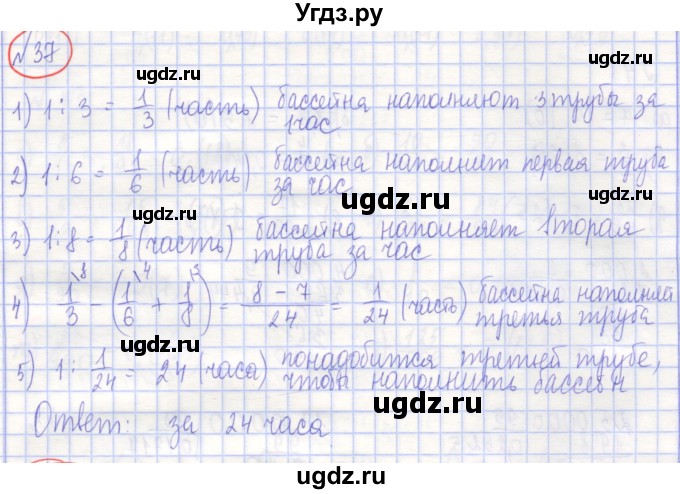 Угдз.ру
№37
1) 1 : 3 = 1/3 (часть) бассейна наполняют 3 трубы за
1 час
2) 1 : 6 = 1/6 (часть) бассейна наполнит первая труба
за час
3) 1 : 8 = 1/8 (часть) бассейна наполняет вторая
труба за час
4) 1/3 \8 - (1/6 \4 + 1/8 \3) = 8 - 7/24 = 1/24 (часть) бассейна наполняет
третья труба
5) 1 : 1/24 = 24 (часа) понадобится третьей трубе,
чтобы наполнить бассейн
Ответ: за 24 часа
ugdz.ru
ugdz.ru
ugdz.ru
ugdz.ru
ugdz.ru
ugdz.ru
ugdz.ru
ugdz.ru
ugdz.ru
ugdz.ru
ugdz.ru